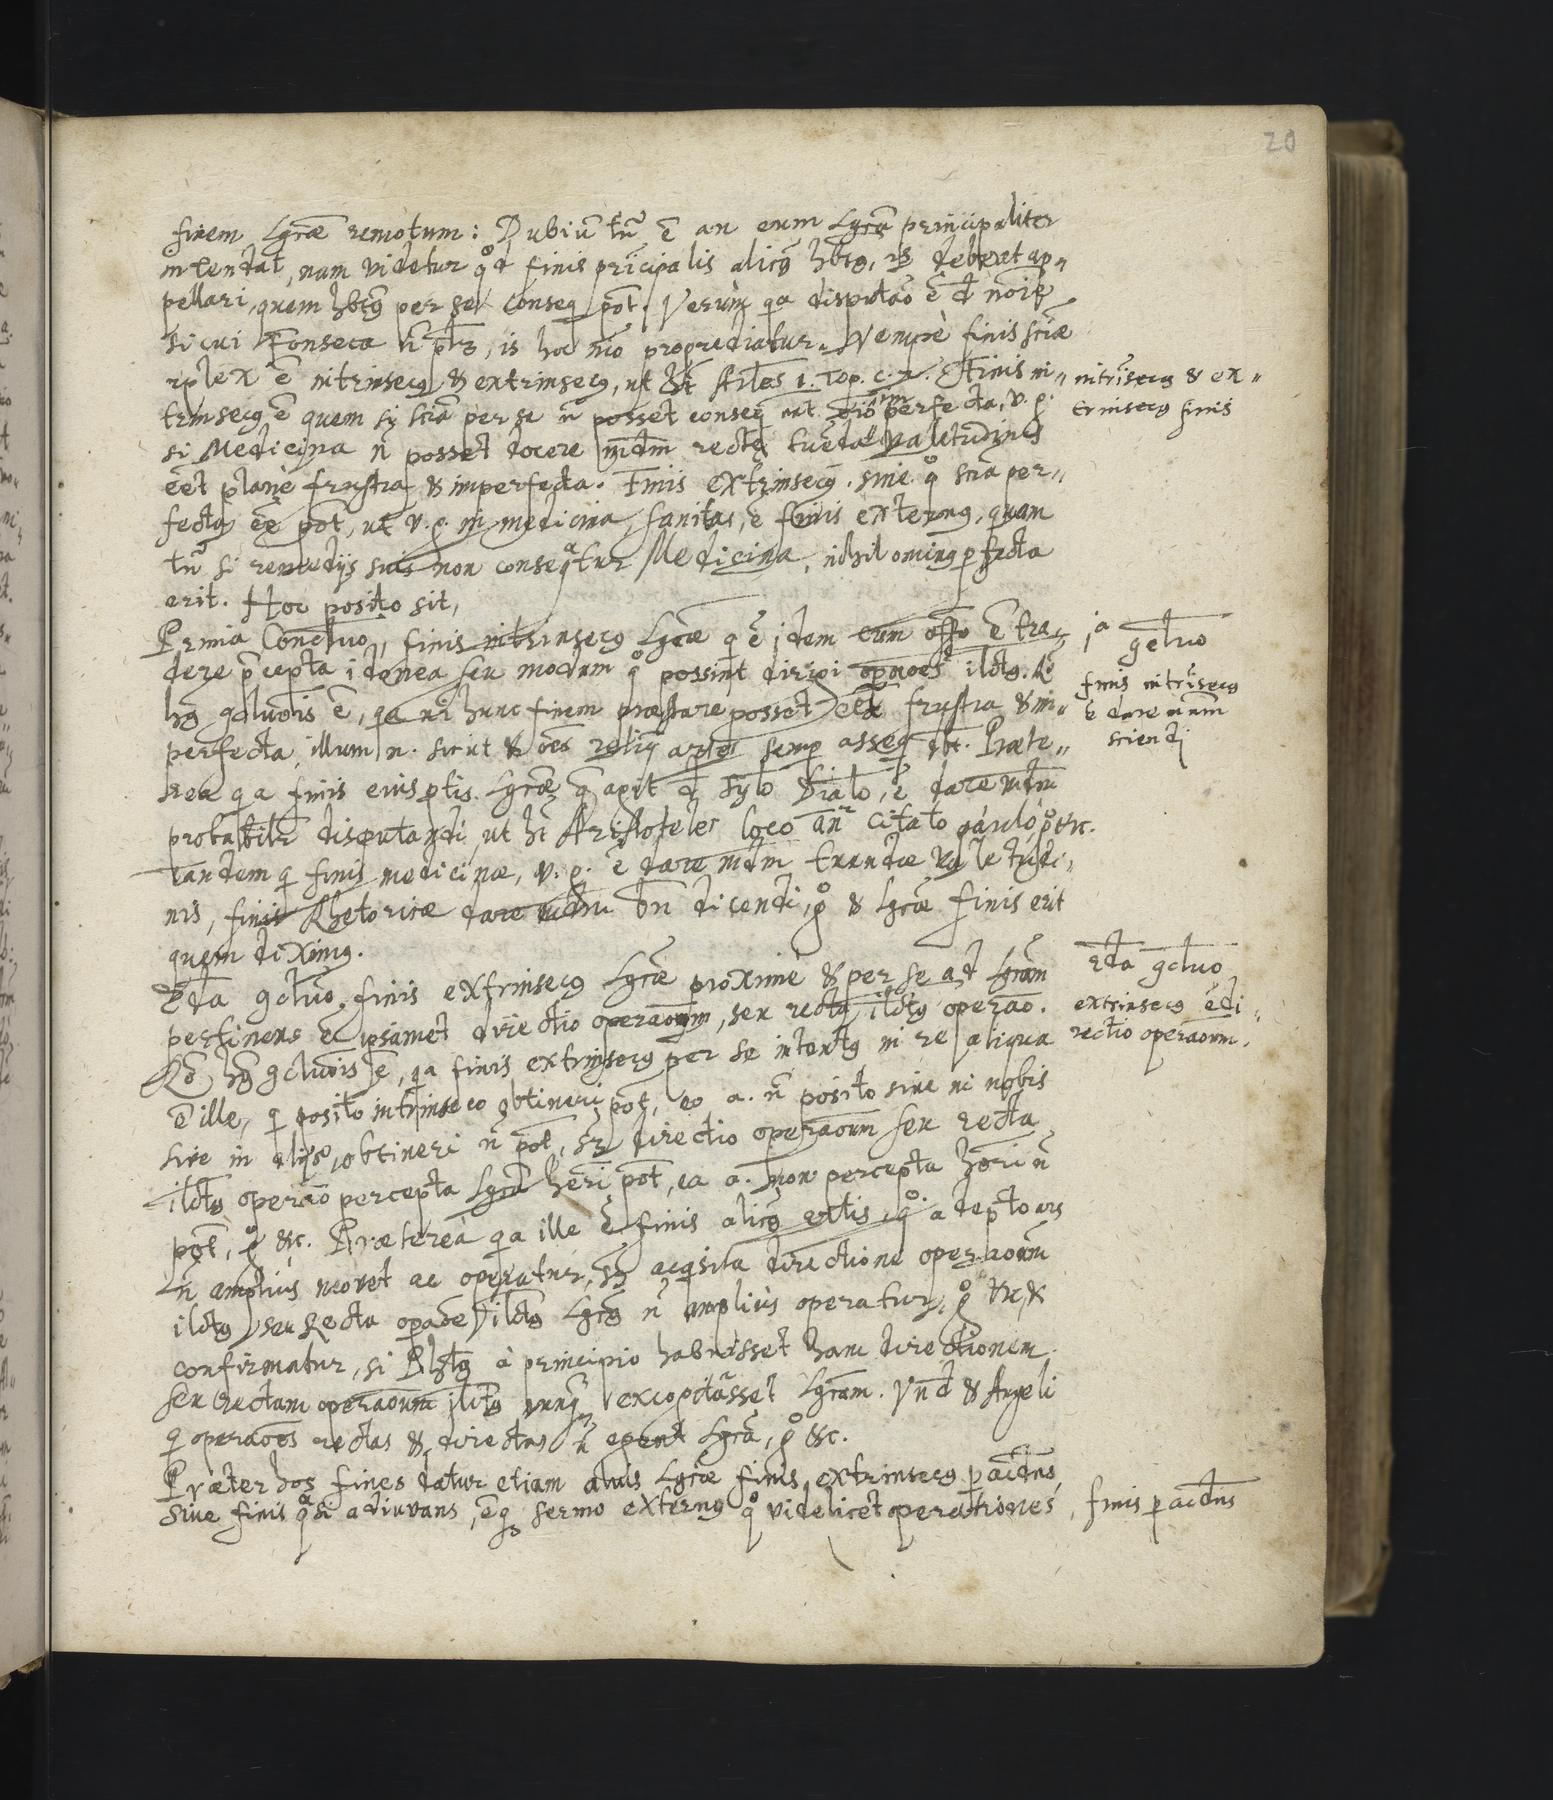 20
finem Lgcæ remotum: Dubiū tn̄ ē an eum Lgca principaliter
intendat, nam videtur qd finis prīcipalis alicꝰ hbtꝰ, is debeat ap„
pellari, quem hbtꝰ per se conseq pōt. Verùm qa disputāo ē d noīe
si cui Fonseca n̄ plꝫ, is hoc mō progrediatur. Nempè finis sciæ
2plex ē intrinsecꝰ & extrinsecꝰ, ut ht̄ Arles 1. Top. c. 2. Finis in„
trinsecꝰ ē quem si scīa per se n̄ posset conseq perfecta, v. g.
si Medicina n̄ posset docere mdm rectè tuēdæ valetudinis
eēt planè frustra & imperfecta. Finis extrinsecꝰ. sine qo scīa per„
fecta eē pōt, ut v. g. in medicina, sanitas, ē finis externꝰ, quam
tn̄ si remedijs suis non consequatur Medicina, nihilominꝰ pfecta
erit. Hoc posito sit,
Prima Concluo, finis intrinsecꝰ Lgcæ q ē idem cum offo ē tra„
dere p̄cepta idonea seu modum qo possint dirigi operaōes ilctꝰ. Rō
hꝰ gcluōis ē, qa ni hunc finem præstare posset eēt frustra & im„
perfecta, illum n. sicut & oēs reliq artes semp asseq dbt. Præte„
rea qa finis eius ptis Lgcæ q agit d Sylo Dialo, ē dare mdm
probabilr disputandi, ut ht̄ Aristoteles loco an̄ citato paulo, go &c.
Tandem q finis medicinæ, v. g. ē dare mdm tuendæ valetudi„
nis, finis Rhetoricæ dare mdm bn̄ dicendi, go & Lgcæ finis erit
quem diximꝰ.
2da gcluo, finis extrinsecꝰ Lgcæ proximè & per se ad Lgcam
pertinens ē ipsamet directio operaōnum, seu recta ilctꝰ operāo.
Rō hꝰ gcluōis ē, qa finis extrinsecꝰ per se intentꝰ in re aliqua
ē ille, q posito intrinseco obtineri pōt, eo a. n̄ posito sive in nobis
sive in alijs, obtineri n̄ pōt, sꝫ directio operaōnum seu recta
ilctꝰ operāo percepta Lgca hēri pōt, ea a. non percepta hēri n̄
pōt, go &c. Præterea qa ille ē finis alicꝰ artis, qo adepto ars
n̄ ampliùs movet ac operatur, sꝫ acqsita directione operaōnum
ilctꝰ seu Recta operaōe ilctꝰ Lgcꝰ n̄ ampliùs operatur, go &c. &
confirmatur, si à principio habuisset hanc directionem
seu rectam operaōnum ilctꝰ nunq excogitasset Lgcam. Vnd & Angeli
q operaōes rectas & directas n̄ egent Lgca, go &c.
Præter hos fines datur etiam alius Lgcæ finis extrinsecꝰ p accdns
sive finis qsi adiuvans, ēq sermo externꝰ qo videlicet operationes
intrīsecꝰ & ex„
trinsecꝰ finis
1a gcluo
finis intrīsecꝰ
ē dare mdm
sciendi
2da gcluo
extrinsecꝰ ē di„
rectio operaōnum.
finis p accdns